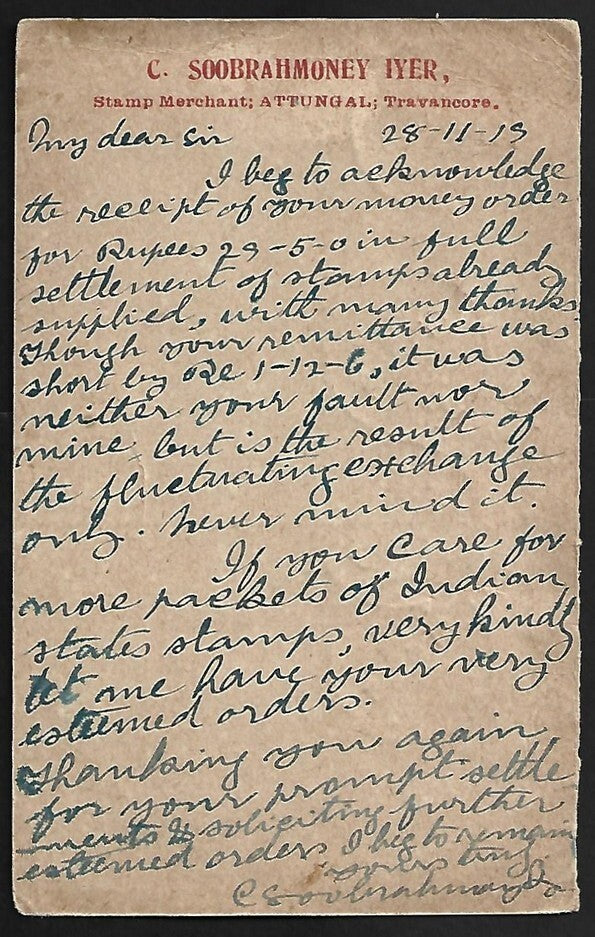 C. SOOBRAHMONEY IYER,
Stamp Merchant; ATTUNGAL; Travancore.
My dear Sir 28-11-19
I beg to acknowledge
the receipt of your money order
for Rupees 29-5-0 in full
settlement of stamps already
supplied, with many thanks.
Though your remittance was
short by Re 1-12-6, it was
neither your fault nor
mine but is the result of
the fluctuating exchange
only. Never mind it.
If you care for
more packets of Indian
states stamps, very kindly
let me have your very
esteemed orders.
Thanking you again
for your prompt settle
ments & soliciting further
esteemed orders I beg to remain
yours truly
C Soobrahmoney